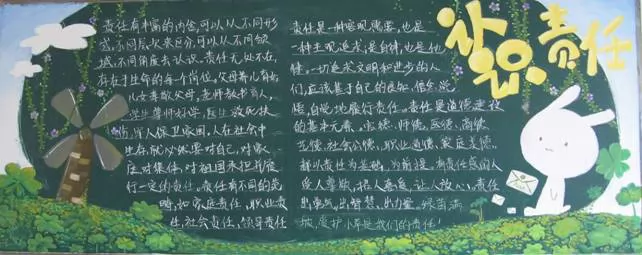 认识责任
责任有丰富的内含,可以从不同形
式,不同层次来区分,可以从不同领
域,不同角度去认识。责任无处不在,
存在于生命的每个岗位。父母养儿育女,
儿女孝敬父母,老师教书育人,
学生尊师好学,医生救死扶
伤,军人保卫家园,人在社会中
生存,就必须要对自己,对家
庭对集体,对祖国承担并履
行一定的责任。责任有不同的范
畴,如家庭责任,职业责
任,社会责任,领导责任
责任是一种客观需要,也是
一种主观追求;是自律,也是他
律。一切追求文明和进步的人
们,应该基于自己的良知,信念,觉
悟,自觉地履行责任。责任是道德建设
的基本元素。
社会公德,职业道德,家庭美德,
都以责任为基础,为前提。有责任感的人
受人尊敬,招人喜爱,让人放心。责任
出勇气,出智慧,出力量。
爱护小草是我们的责任!